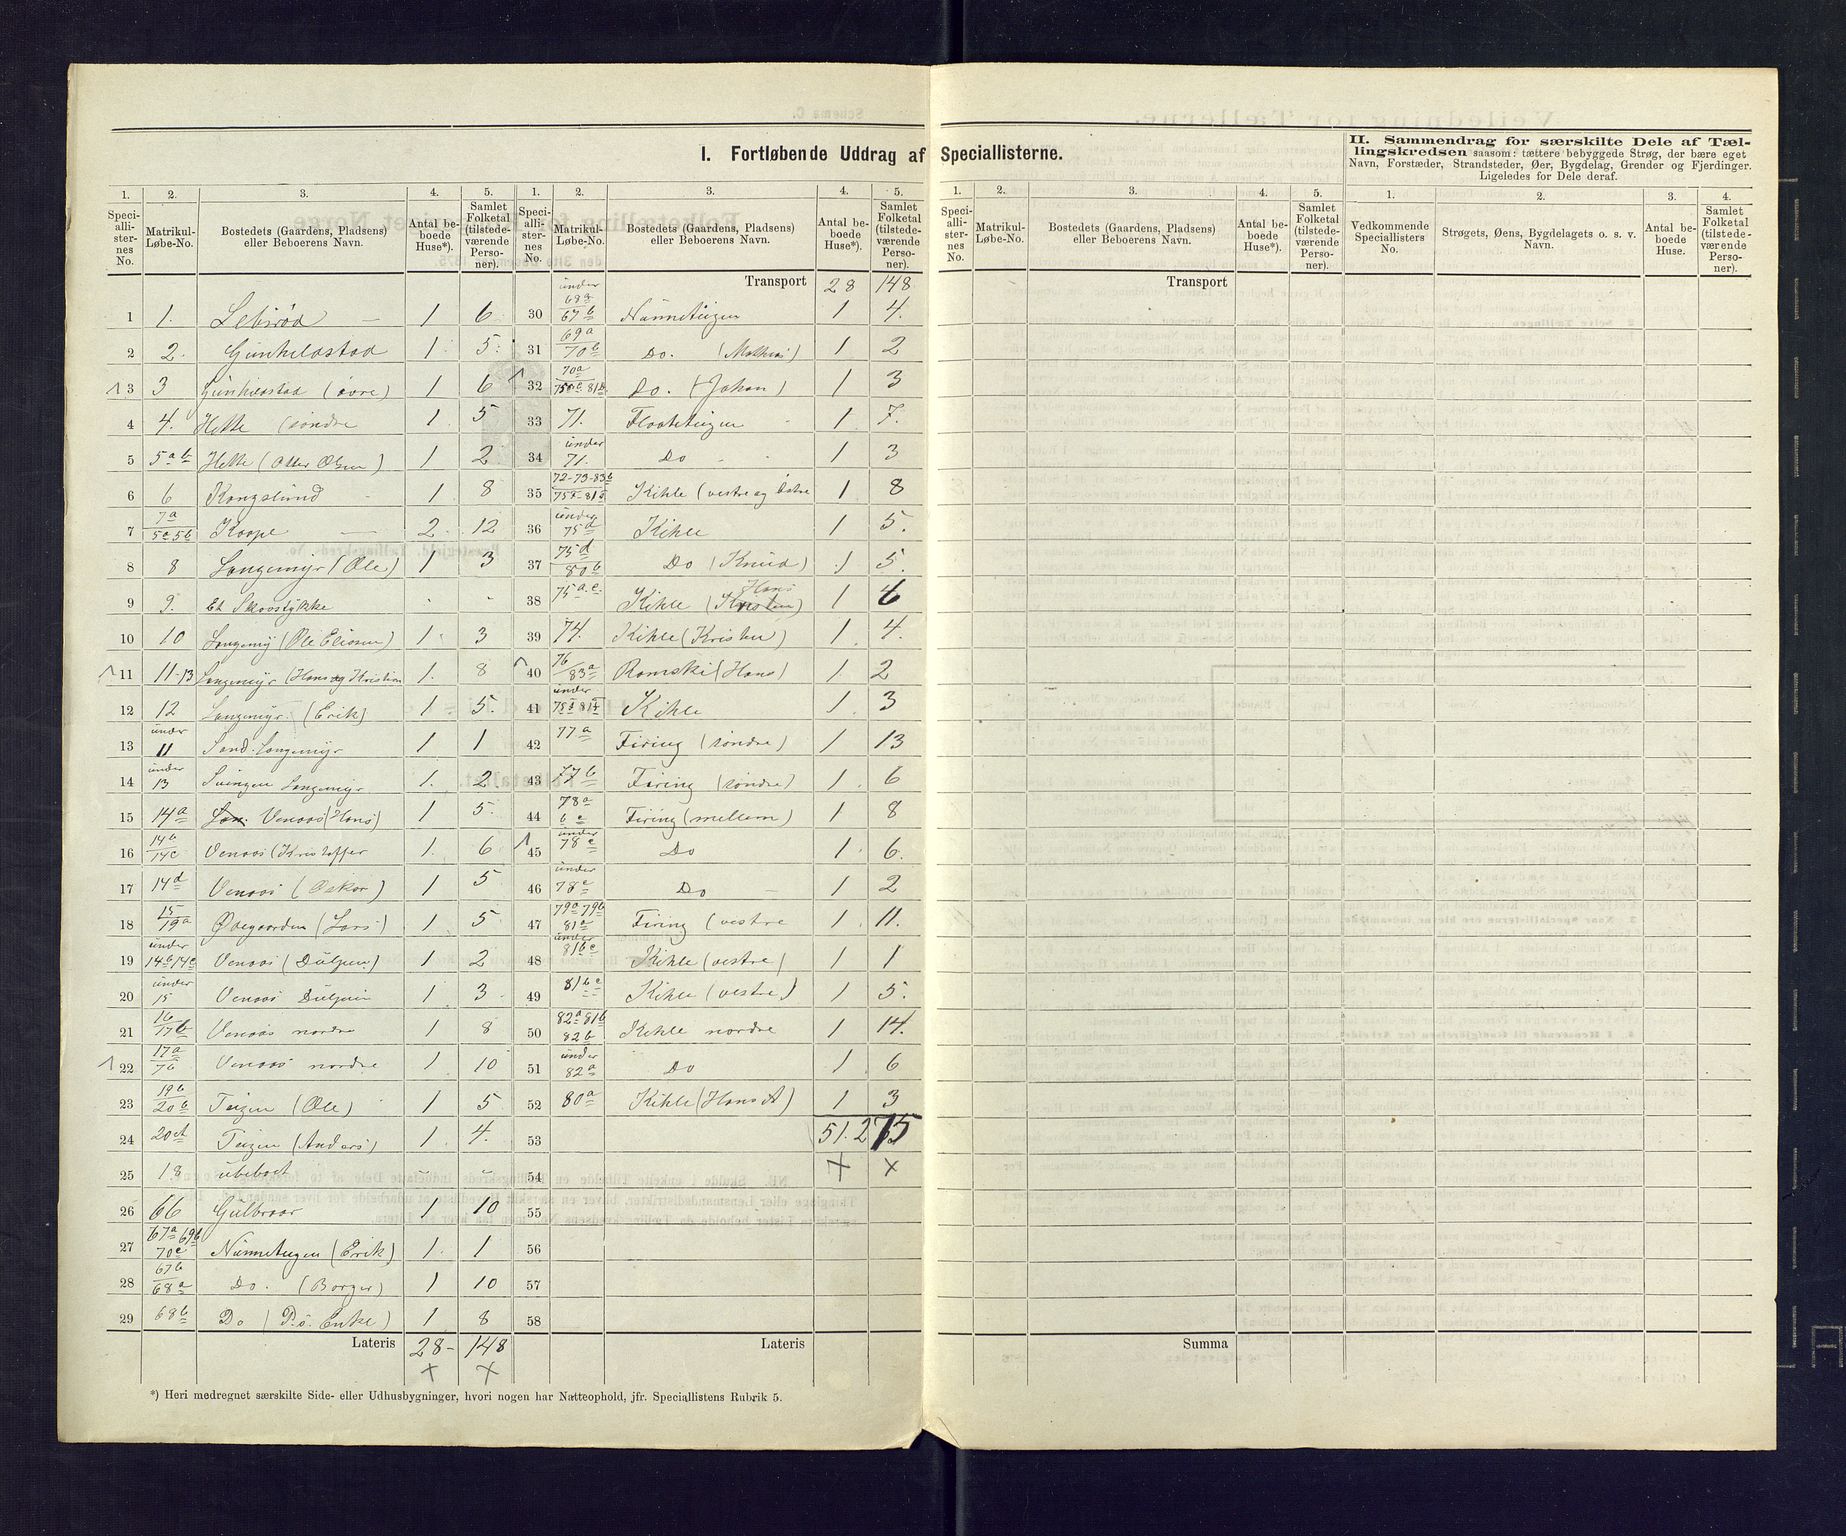 I. Fortløbende Uddrag af Speciallisterne.
II. Sammendrag for særskilte Dele af Tællingskredsen saasom: tættere bebyggede Strøg, der bære eget Navn, Forstæder, Strandsteder, Øer, Bygdelag, Grender og Fjerdinger. Ligeledes for Dele deraf.
1. 2. 3. 4. 5. 1. 2. 3. 4. 5. 1. 2. 3. 4. 5. 1. 2. 3. 4.
Speciallisternes No. Matrikul-Løbe-No. Bostedets (Gaardens, Pladsens) eller Beboerens Navn. Antal beboede Huse*). Samlet Folketal (tilstedeværende Personer).
Speciallisternes No. Matrikul-Løbe-No. Bostedets (Gaardens, Pladsens) eller Beboerens Navn. Antal beboede Huse*). Samlet Folketal (tilstedeværende Personer).
Speciallisternes No. Matrikul-Løbe-No. Bostedets (Gaardens, Pladsens) eller Beboerens Navn. Antal beboede Huse*). Samlet Folketal (tilstedeværende Personer).
Vedkommende Speciallisters No. Strøgets, Øens, Bygdelagets o. s. v. Navn. Antal beboede Huse. Samlet Folketal (tilstedeværende Personer).
1 1. Lebsrød 1 6
2 2. Gunhildstad 1 5
3 3 Gunhildstad (øvre) 1 6
4 4. Hette (søndre 1 5
5 5a b Hette (Otter Olsen) 1 2
6 6 Kongslund 1 8
7 7a 5a 5b Kaape 2 12
8 8 Langemyr (Ole) 1 3
9 9. Et Skovstykke - -
10 10 Langemyr (Ole Eliasen) 1 3
11 11-13 Langemyr (Hans og Kristian 1. 8
12 12 Langemyr (Erik) 1 5.
13 under 11 Sand. Langemyr 1 1
14 under 13 Svingen Langemyr 1. 2
15 14a Venaas (Hans) 1 5
16 14b 14c Venaas (Kristoffer 1. 6
17 14d Venaas (Oskar) 1 5
18 15 19a Øvegaarden (Lars) 1 5
19 under 14b 14c Venaas (Dulpen) 1 2
20 under 15 Venaas Dulpen 1 3
21 16 17b Venaas nordre 1 8
22 17a 76 Venaas nordre 1 10
23 19b 20b Teigen (Ole) 1 5
24 20a Teigen (Anders) 1. 4.
25 18 ubeboet - -
26 66 Gulbraar 1 10
27 67a 69b 70c Nunneteigen (Erik) 1. 1
28 67b 68a Do. (Borger) 1 10
29 68b Do (P.s. Enke) 1 8
Lateris 28 - 148
Transport 28 148
30 under 68a 67b Nunneteigen 1 4.
31 69a 70b Do. (Mathias) 1 2
32 70a 75 81b Do. (Johan) 1 3
33 71. Flaateteigen 1 7.
34 under 71. Do 1 3
35 72-73-83b 75 81 Kihle (vestre og østre 1 8
36 under 75d Kihle 1 5.
37 75d 80b Do (Knud) 1 5.
38 75a.c. Kihle (Hans 1 6
39 74. Kihle (Kristen) 1. 4.
40 76 83a Ramski (Hans) 1. 2
41 under 75 81 Kihle 1. 3
42 77a Firing (søndre) 1 13
43 77b Firing (søndre) 1. 6
44 78a b c Firing (mellem) 1 8
45 under 78c Do 1. 6.
46 under 78c Do 1 2
47 79a 79b 81a Firing (vestre 1. 11.
48 under 81b c Kihle (vestre) 1 1
49 81b c Kihle (vestre) 1 5.
50 82a 81b 82b Kihle nordre 1 14.
51 under 82a Do 1. 6
52 80a Kihle (Hans A) 1 3
53 51. 275
54
55
56
57
58
Lateris
Transport
Summa
*) Heri medregnet særskilte Side- eller Udhusbygninger, hvori nogen har Natteophold, jfr. Speciallistens Rubrik 5.